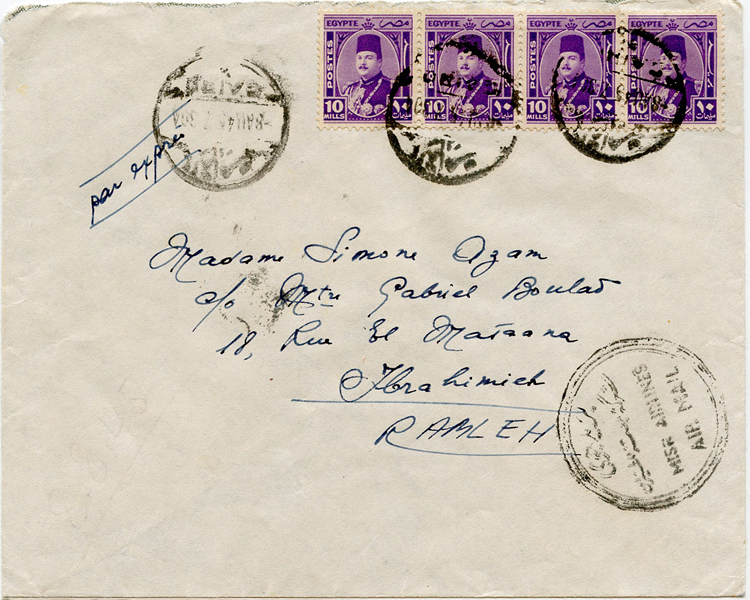 EGYPTE مصر EGYPTE مصر EGYPTE مصر EGYPTE مصر
POSTES POSTES POSTES POSTES
10 MILLS ١٠ مليمات 10 MILLS ١٠ مليمات 10 MILLS ١٠ مليمات 10 MILLS ١٠ مليمات
CAIRO
par expres
Madame Simone Azam
c/o Mtre Gabriel Boulad
18, Rue El Mataana
Ibrahimieh
RAMLEH
MISR AIRLINES
AIR MAIL